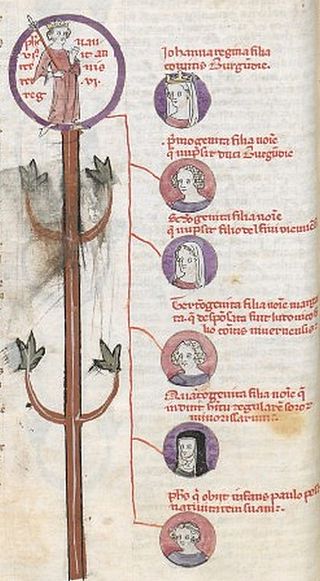 phs nauar
Iohanna regina filia
comitis Burgundie.
Primogenita filia noie
q̄ nupsit duci Burgūdie
Scd̄ogenita filia noie
q̄ nupsit filio delfini viennēs
Tercogenita filia noie marga
ta q̄ despōsata fuit ludouico fi
lio comitis niuernensis
Quartogenita filia noie q̄
induit hītū regularē soror
minorissarum
Phs q̄ obiit infans paulo post
natiuitatem suam